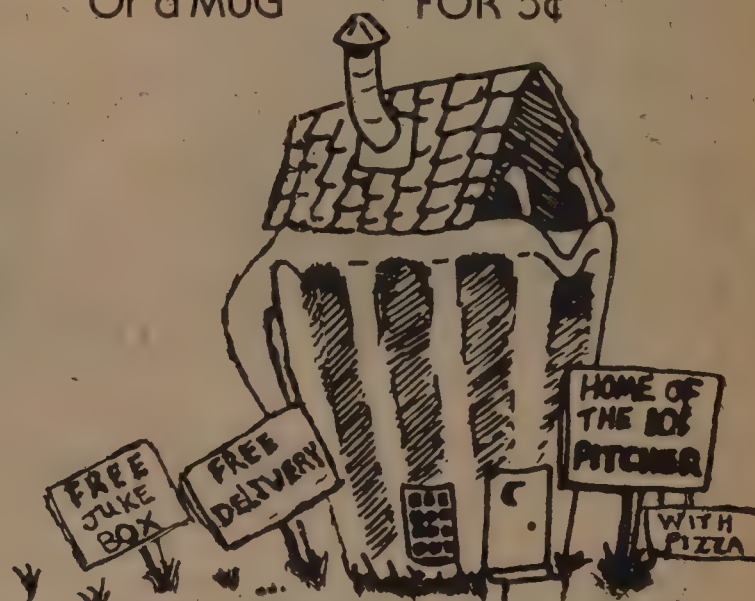 Or a MUG FOR 5¢
FREE
JUKE
BOX
FREE
DELIVERY
HOME OF
THE 10¢
PITCHER
WITH
PIZZA